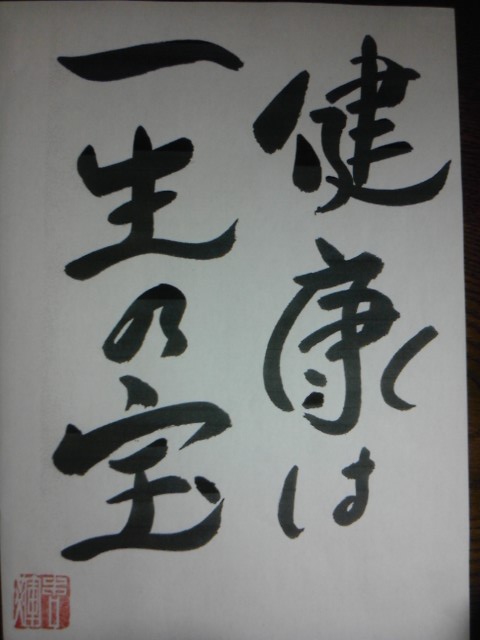 健康は
一生の宝